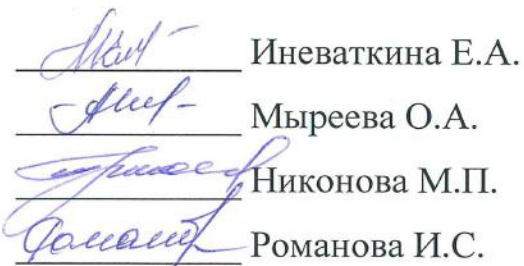 Иневаткина Е.А.
Мыреева О.А.
Никонова М.П.
Романова И.С.